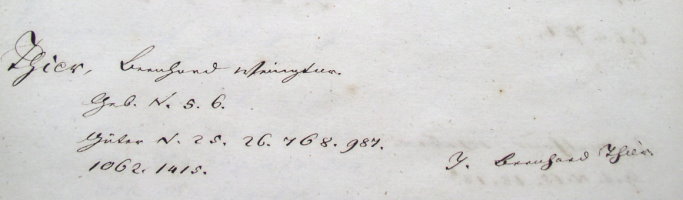 Thier, Bernhard
Geb. N. 5. 6.
Güter N. 25. 26. 768. 987.
1062. 1415.
J. Bernhard Thier